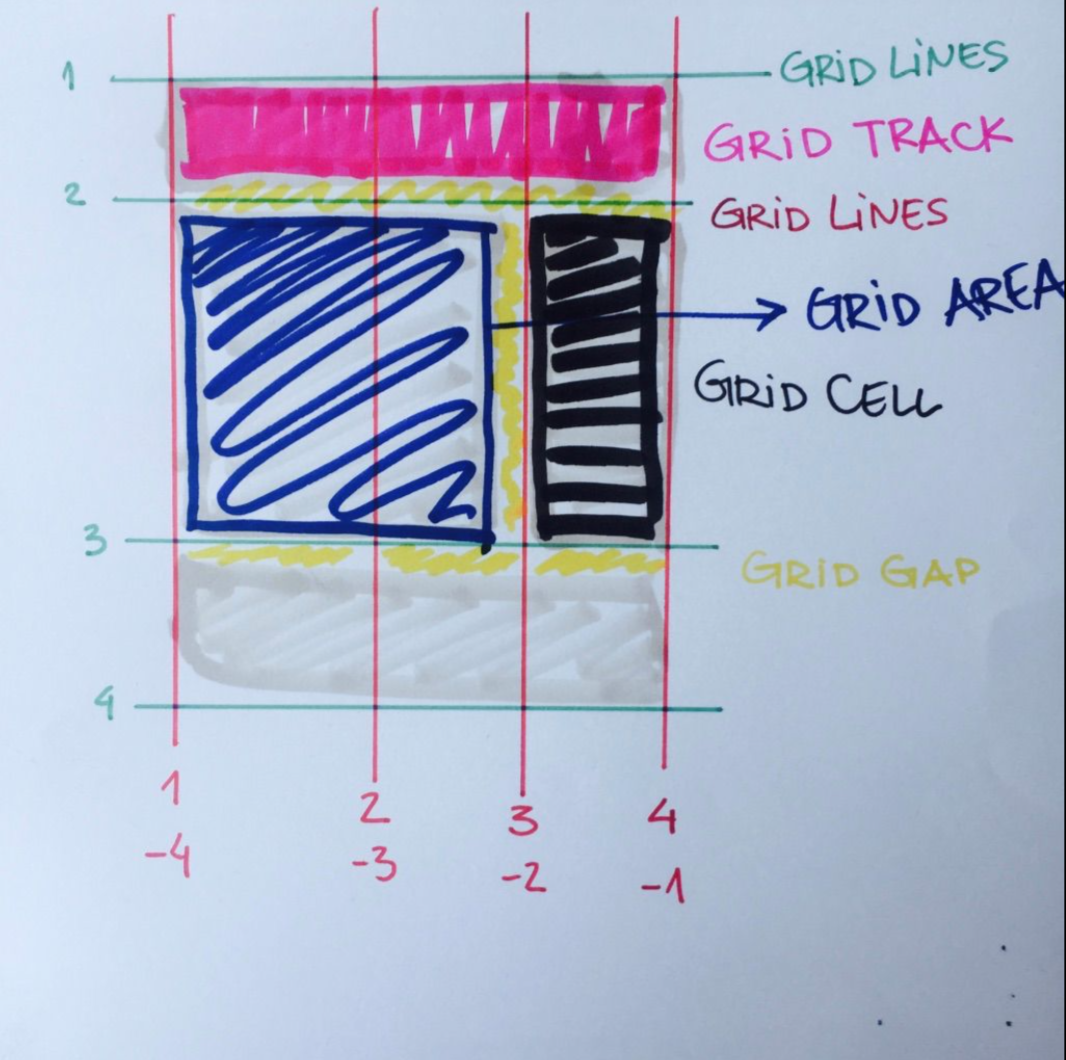 1
GRiD LiNES
GRiD TRACK
2
GRiD LiNES
GRiD AREA
GRiD CELL
3
GRiD GAP
4
1 2 3 4
-4 -3 -2 -1